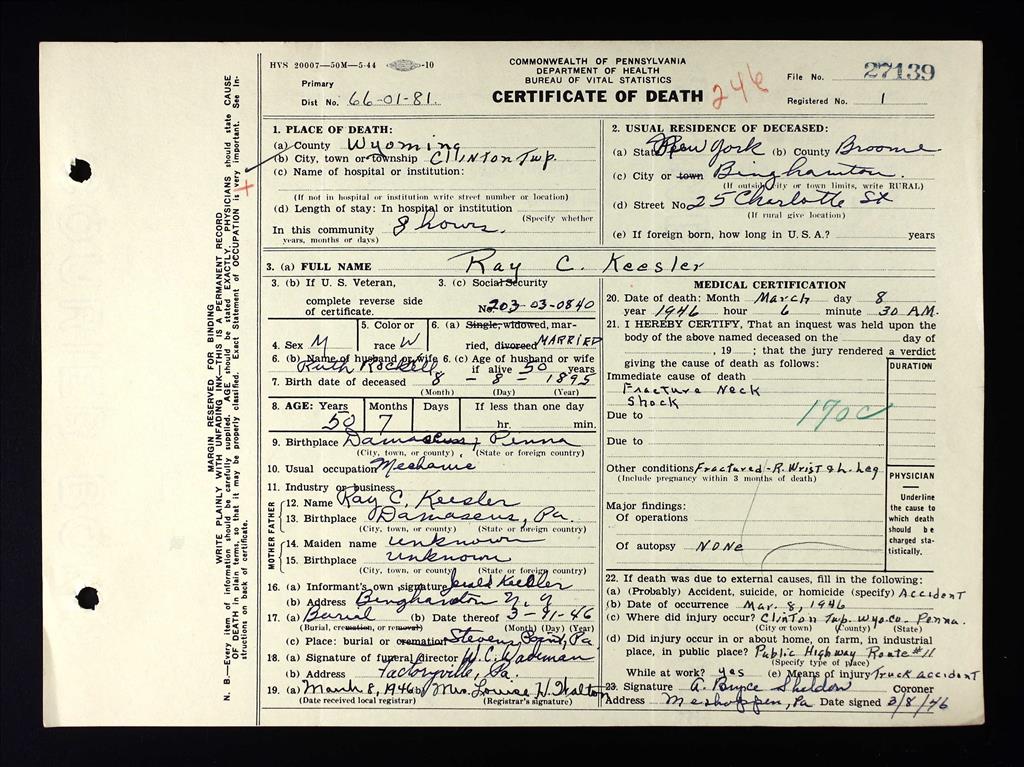 HVS 20007—50M—5-44 -10
COMMONWEALTH OF PENNSYLVANIA
DEPARTMENT OF HEALTH
BUREAU OF VITAL STATISTICS
CERTIFICATE OF DEATH
246
Primary
Dist No. 66-01-81.
File No. 27139
Registered No. 1
MARGIN RESERVED FOR BINDING
WRITE PLAINLY WITH UNFADING INK—THIS IS A PERMANENT RECORD
N. B.—Every item of information should be carefully supplied. AGE should be stated EXACTLY. PHYSICIANS should state CAUSE
OF DEATH in plain terms, so that it may be properly classified. Exact Statement of OCCUPATION is very important. See In-
structions on back of certificate.
1. PLACE OF DEATH:
(a) County Wyoming
(b) City, town or township Clinton Twp.
(c) Name of hospital or institution:
(If not in hospital or institution write street number or location)
(d) Length of stay: In hospital or institution
(Specify whether
In this community 8 hours.
years, months or days)
2. USUAL RESIDENCE OF DECEASED:
(a) State New York (b) County Broome
(c) City or town Binghamton.
(If outside city or town limits, write RURAL)
(d) Street No 25 Charlotte St
(If rural give location)
(e) If foreign born, how long in U. S. A.? years
3. (a) FULL NAME Ray C. Keesler
3. (b) If U. S. Veteran,
complete reverse side
of certificate.
3. (c) Social Security
No. 203-03-0840
4. Sex M
5. Color or
race W
6. (a) Single, widowed, mar-
ried, divorced MARRIED
6. (b) Name of husband or wife
Ruth Rockell
6. (c) Age of husband or wife
if alive 50 years
7. Birth date of deceased 8 - 8 - 1895
(Month) (Day) (Year)
8. AGE: Years Months Days If less than one day
50 7 hr. min.
9. Birthplace Damascus, Penna
(City, town, or county) (State or foreign country)
10. Usual occupation Mechanic
11. Industry or business
FATHER
12. Name Ray C. Keesler
13. Birthplace Damascus, Pa.
(City, town, or county) (State or foreign country)
MOTHER
14. Maiden name unknown
15. Birthplace unknown
(City, town, or county) (State or foreign country)
16. (a) Informant's own signature Keesler
(b) Address Binghamton N. Y
17. (a) Burial (b) Date thereof 3-11-46
(Burial, cremation, or removal) (Month) (Day) (Year)
(c) Place: burial or cremation Stevens Point, Pa.
18. (a) Signature of funeral director W. C. Wademan
(b) Address Factoryville, Pa.
19. (a) March 8, 1946 (b) Mrs. Louise H. Walton
(Date received local registrar) (Registrar's signature)
MEDICAL CERTIFICATION
20. Date of death: Month March day 8
year 1946 hour 6 minute 30 AM.
21. I HEREBY CERTIFY, That an inquest was held upon
the body of the above named deceased on the day of
, 19 ; that the jury rendered a verdict
giving the cause of death as follows:
DURATION
Immediate cause of death
Fracture Neck
Shock
Due to 170c
Due to
Other conditions Fractured - R. Wrist & L. Leg
(Include pregnancy within 3 months of death)
PHYSICIAN
Underline
the cause to
which death
should be
charged sta-
tistically.
Major findings:
Of operations
Of autopsy NONE
22. If death was due to external causes, fill in the following:
(a) (Probably) Accident, suicide, or homicide (specify) Accident
(b) Date of occurrence Mar. 8, 1946
(c) Where did injury occur? Clinton Twp. Wyo. Co. Penna.
(City or town) (County) (State)
(d) Did injury occur in or about home, on farm, in industrial
place, in public place? Public Highway Route #11
(Specify type of place)
While at work? yes (e) Means of injury Truck accident
23. Signature A. Bryce Sheldon Coroner
Address Meshoppen, Pa Date signed 3/8/46